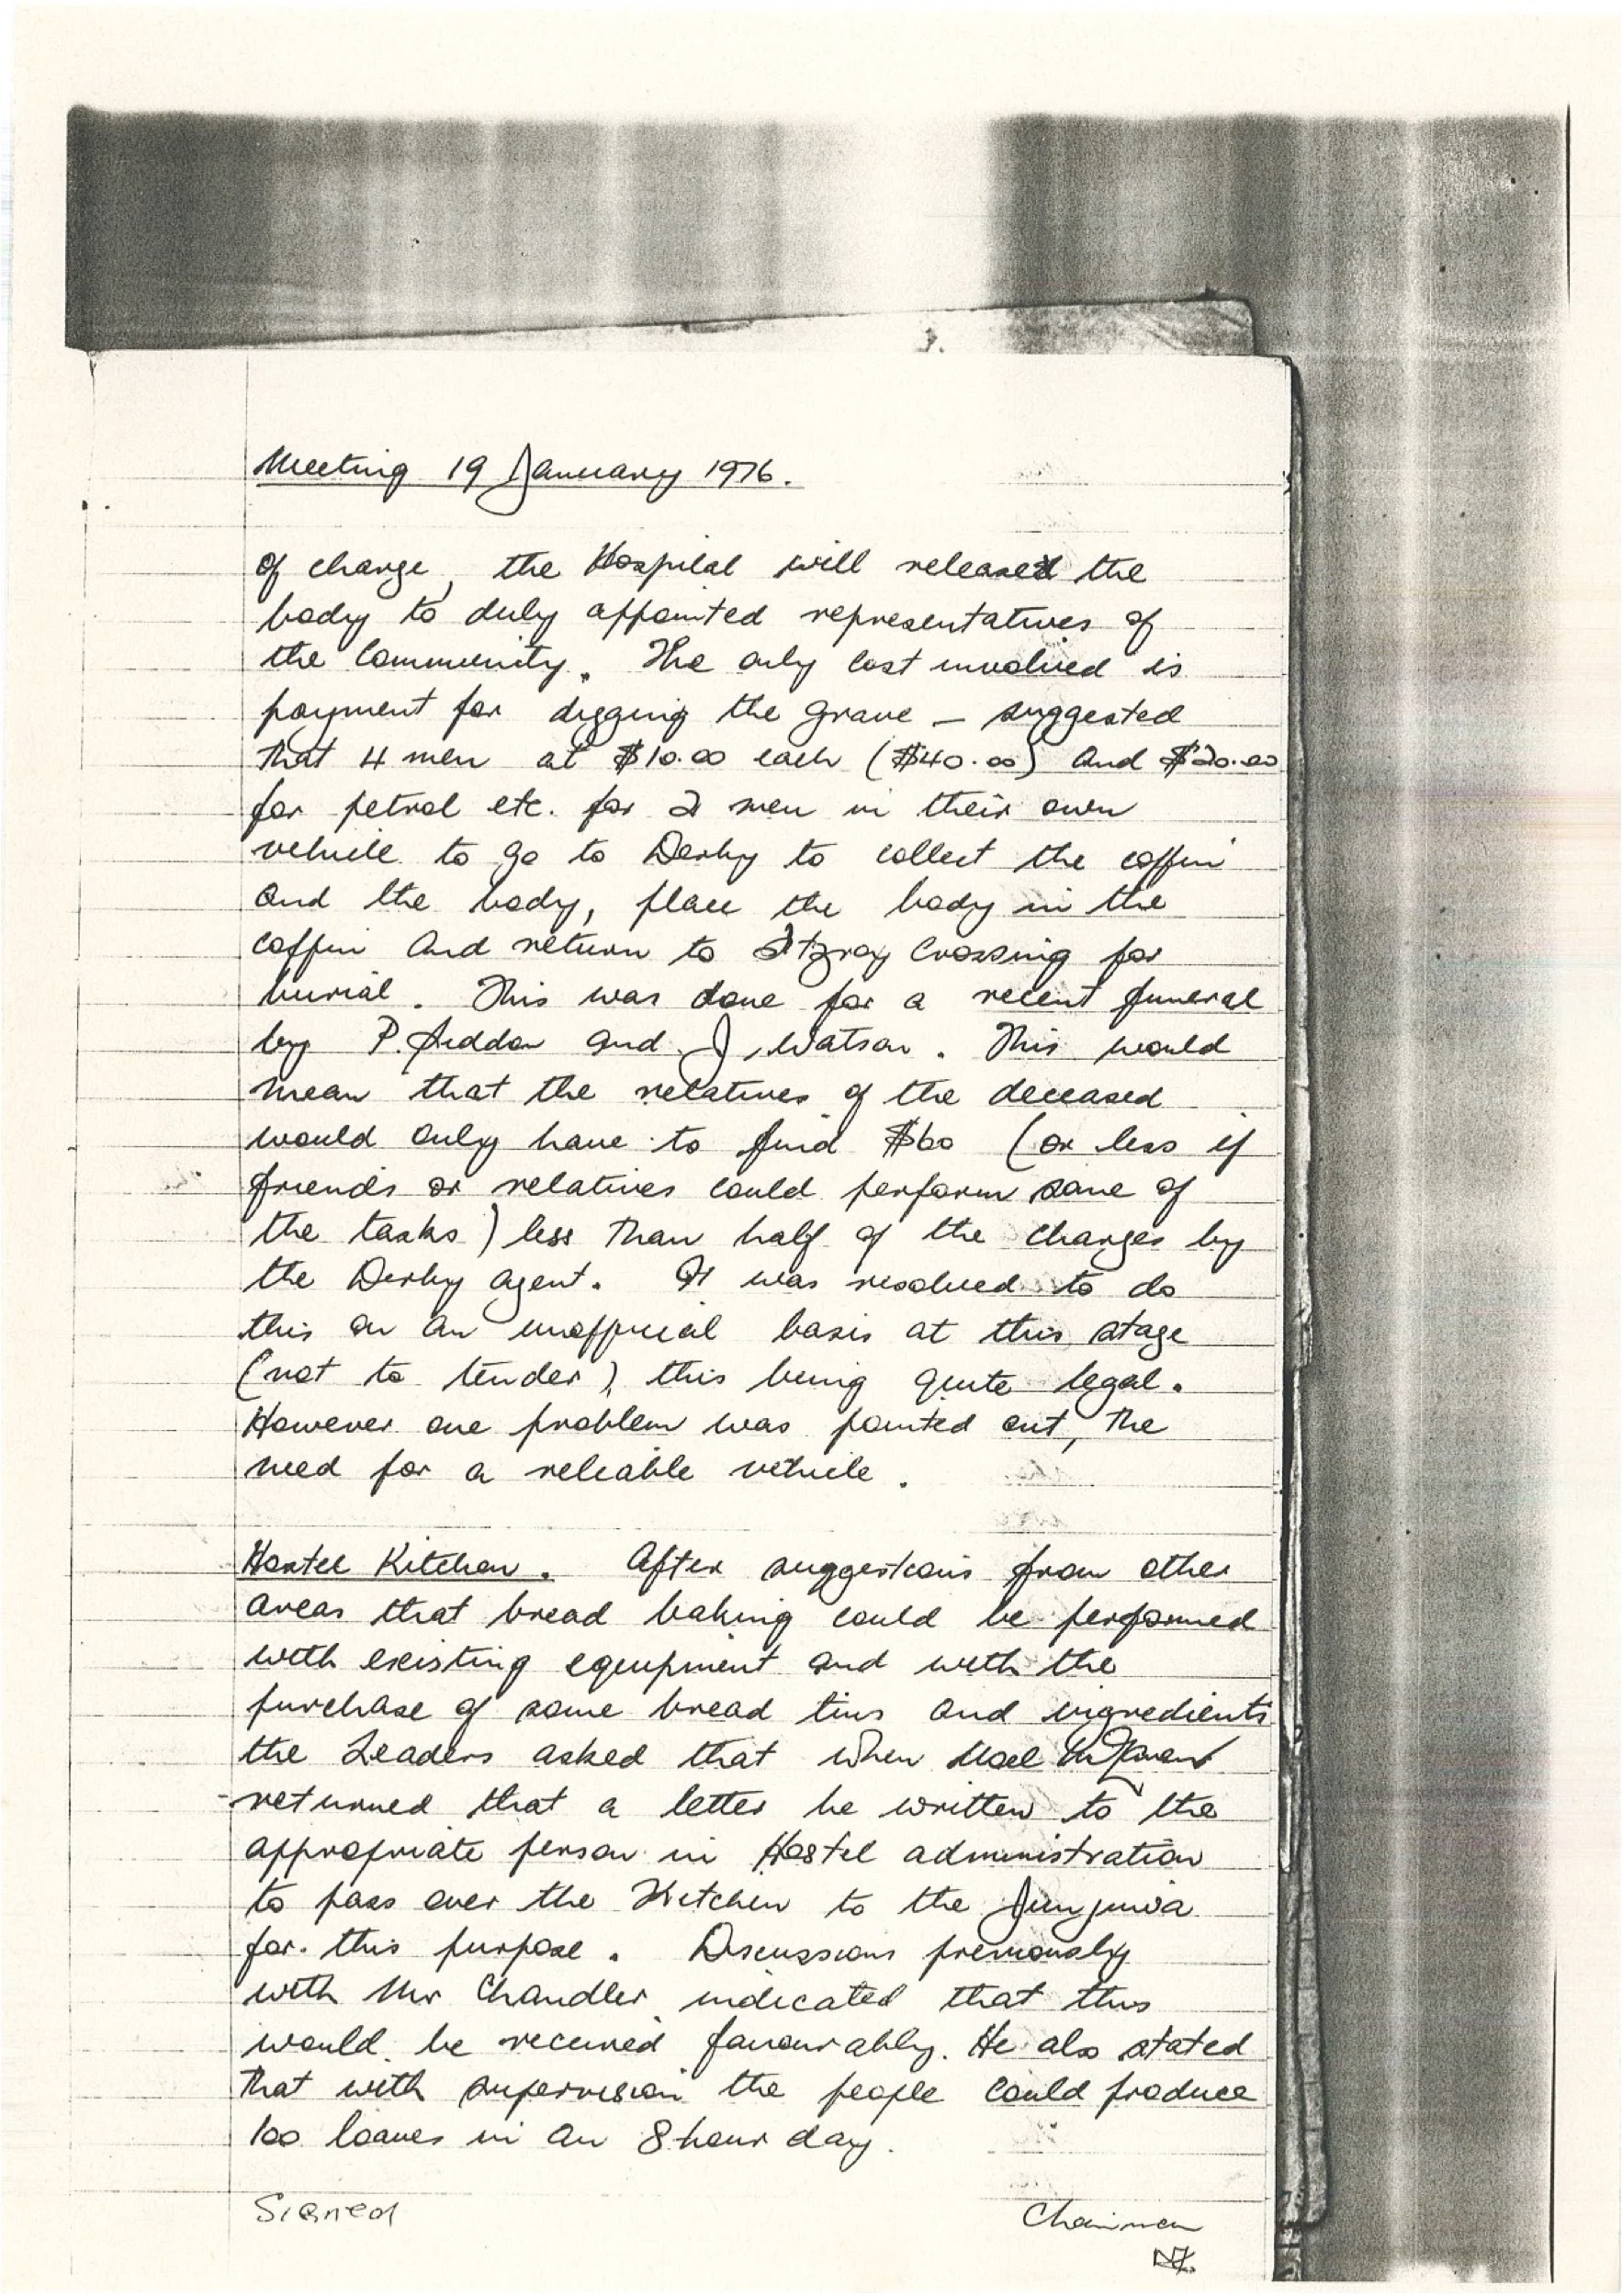 3.
Meeting 19 January 1976.
of charge, the Hospital will released the
body to duly appointed representatives of
the Community. The only cost involved is
payment for digging the grave – suggested
that 4 men at $10.00 each ($40.00) and $20.00
for petrol etc. for 2 men in their own
vehicle to go to Derby to collect the coffin
and the body, place the body in the
coffin and return to Fitzroy Crossing for
burial. This was done for a recent funeral
by P. and J. Watson. This would
mean that the relatives of the deceased
would only have to find $60 (or less if
friends or relatives could perform some of
the tasks) less than half of the charges by
the Derby agent. It was resolved to do
this on an unofficial basis at this stage
(not to tender), this being quite legal.
However one problem was pointed out, the
need for a reliable vehicle.
Hostel Kitchen. After suggestions from other
areas that bread baking could be performed
with existing equipment and with the
purchase of some bread tins and ingredients
the Leaders asked that when Noel
returned that a letter be written to the
appropriate person in Hostel administration
to pass over the Kitchen to the Junjuwa
for this purpose. Discussions previously
with Mr Chandler indicated that this
would be received favourably. He also stated
that with supervision the people could produce
100 loaves in an 8 hour day.
Signed Chairman